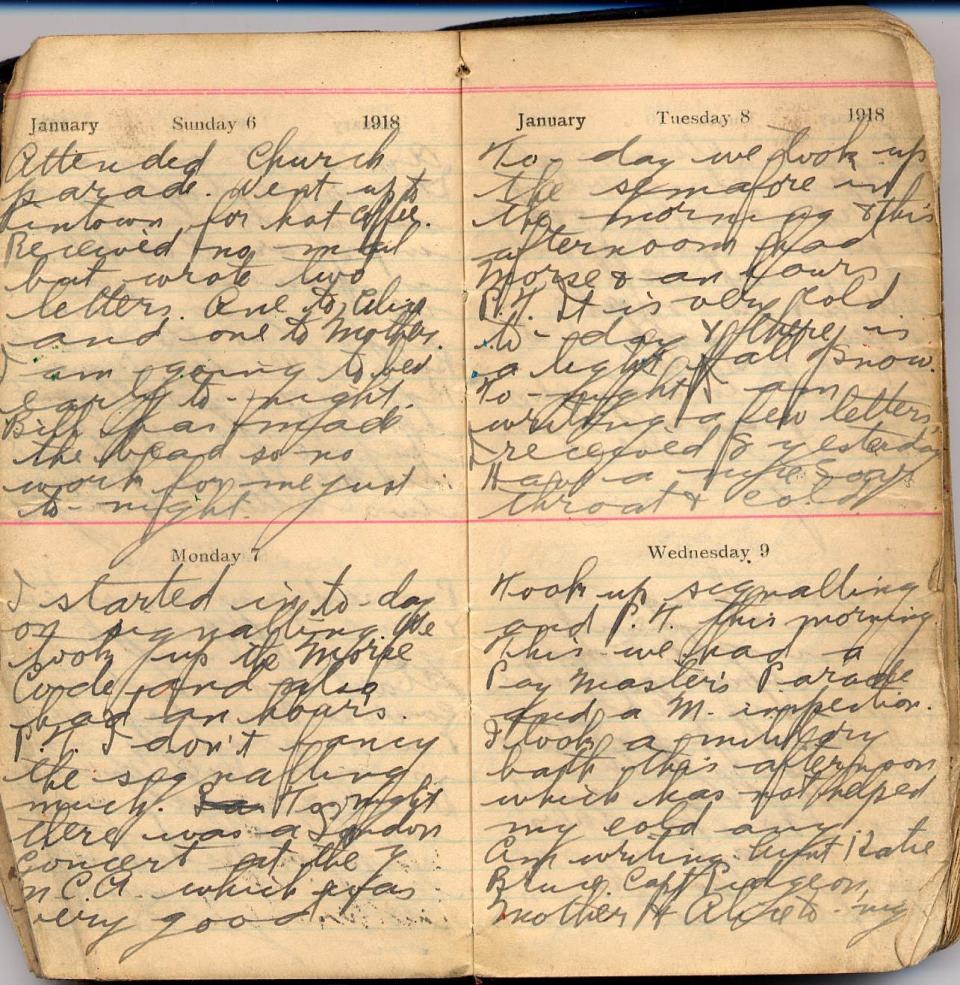 January Sunday 6 1918
Attended Church
parade. Went up to
for hot coffee.
Received no mail
but wrote two
letters. One to Alice
and one to Mother.
I am going to bed
early to-night.
Bill has made
the bead so no
work for me just
to-night.
Monday 7
I started in to-day
on signalling. We
took up the Morse
Code, and also
had an hours.
P.T. I don't fancy
the signalling
much. To-night
there was a London
Concert at the Y
M.C.A. which was
very good.
January Tuesday 8 1918
To-day we took up
the semafore in
the morning & this
afternoon had
Morse & an hours
P.T. It is very cold
to-day & there is
a light fall of snow.
To-night I am
writing a few letters,
I received 8 yesterday
Have a nice sore
throat & cold.
Wednesday 9
Took up signalling
and P.T. this morning.
This we had a
Pay Master's Parade
and a M. inspection.
I took a military
bath this afternoon
which has not helped
my cold any
Am writing Aunt Katie
Bruce, Capt
Mother & Alice to-